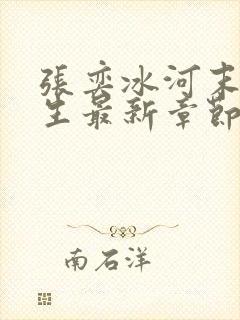 張奕冰河末
生最新章節
南石洋